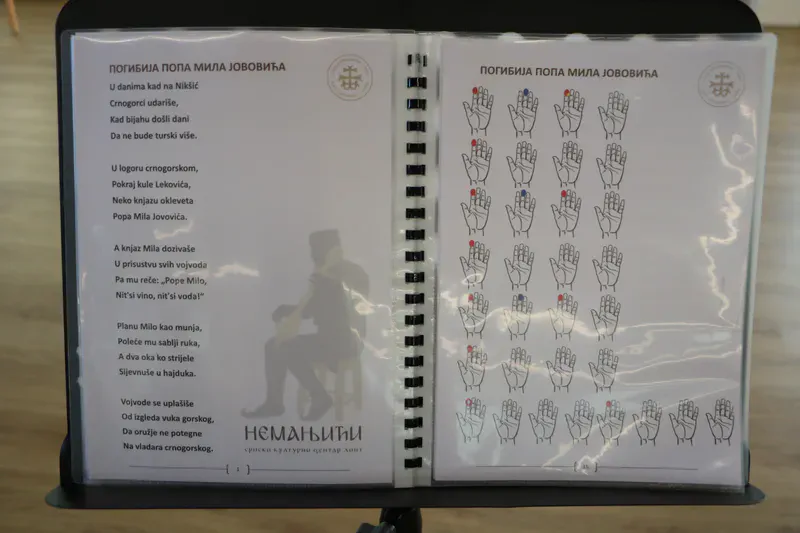 ПОГИБИЈА ПОПА МИЛА ЈОВОВИЋА
U danima kad na Nikšić
Crnogorci udariše,
Kad bijahu došli dani
Da ne bude turski više.
U logoru crnogorskom,
Pokraj kule Lekovića,
Neko knjazu okleveta
Popa Mila Jovovića.
A knjaz Mila dozivaše
U prisustvu svih vojvoda
Pa mu reče: „Pope Milo,
Nit'si vino, nit'si voda!"
Planu Milo kao munja,
Poleće mu sablji ruka,
A dva oka ko strijele
Sijevnuše u hajduka.
Vojvode se uplašiše
Od izgleda vuka gorskog,
Da oružje ne potegne
Na vladara crnogorskog.
НЕМАЊИЋИ
СРПСКИ КУЛТУРНИ ЦЕНТАР ЛИНЦ
1
ПОГИБИЈА ПОПА МИЛА ЈОВОВИЋА